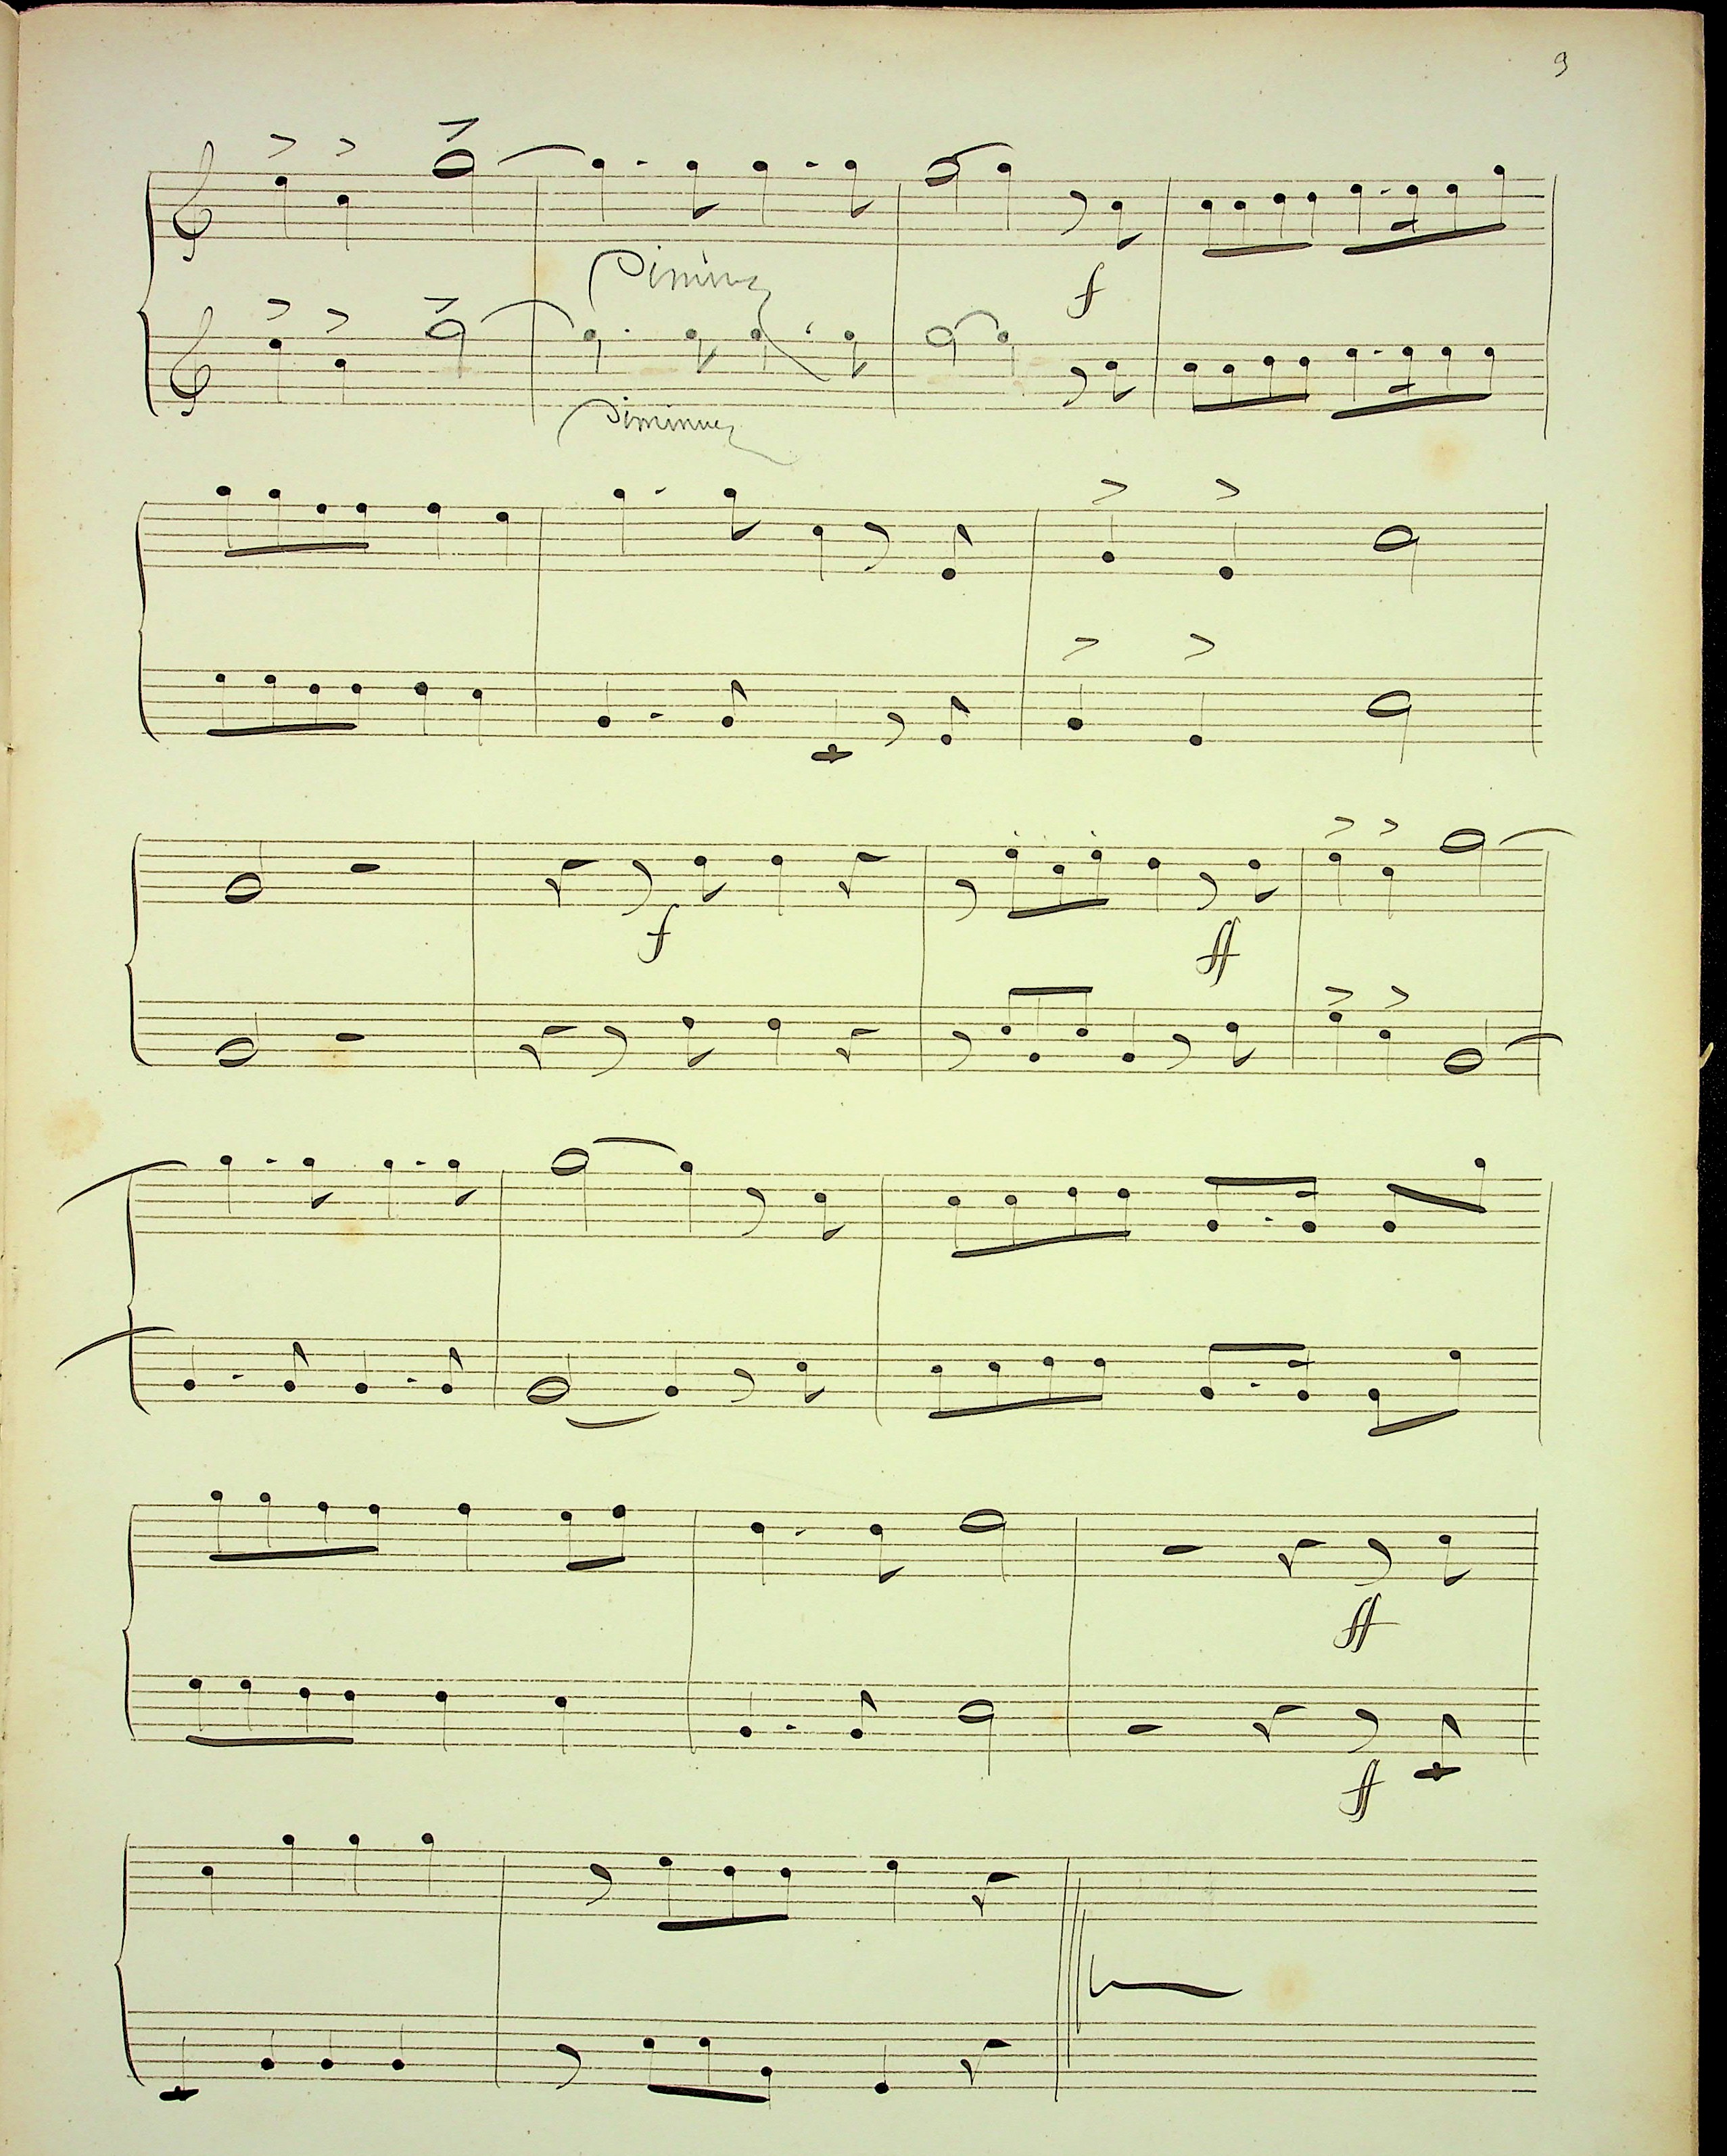 9
Diminuez
f
Diminuez
f
ff
ff
ff